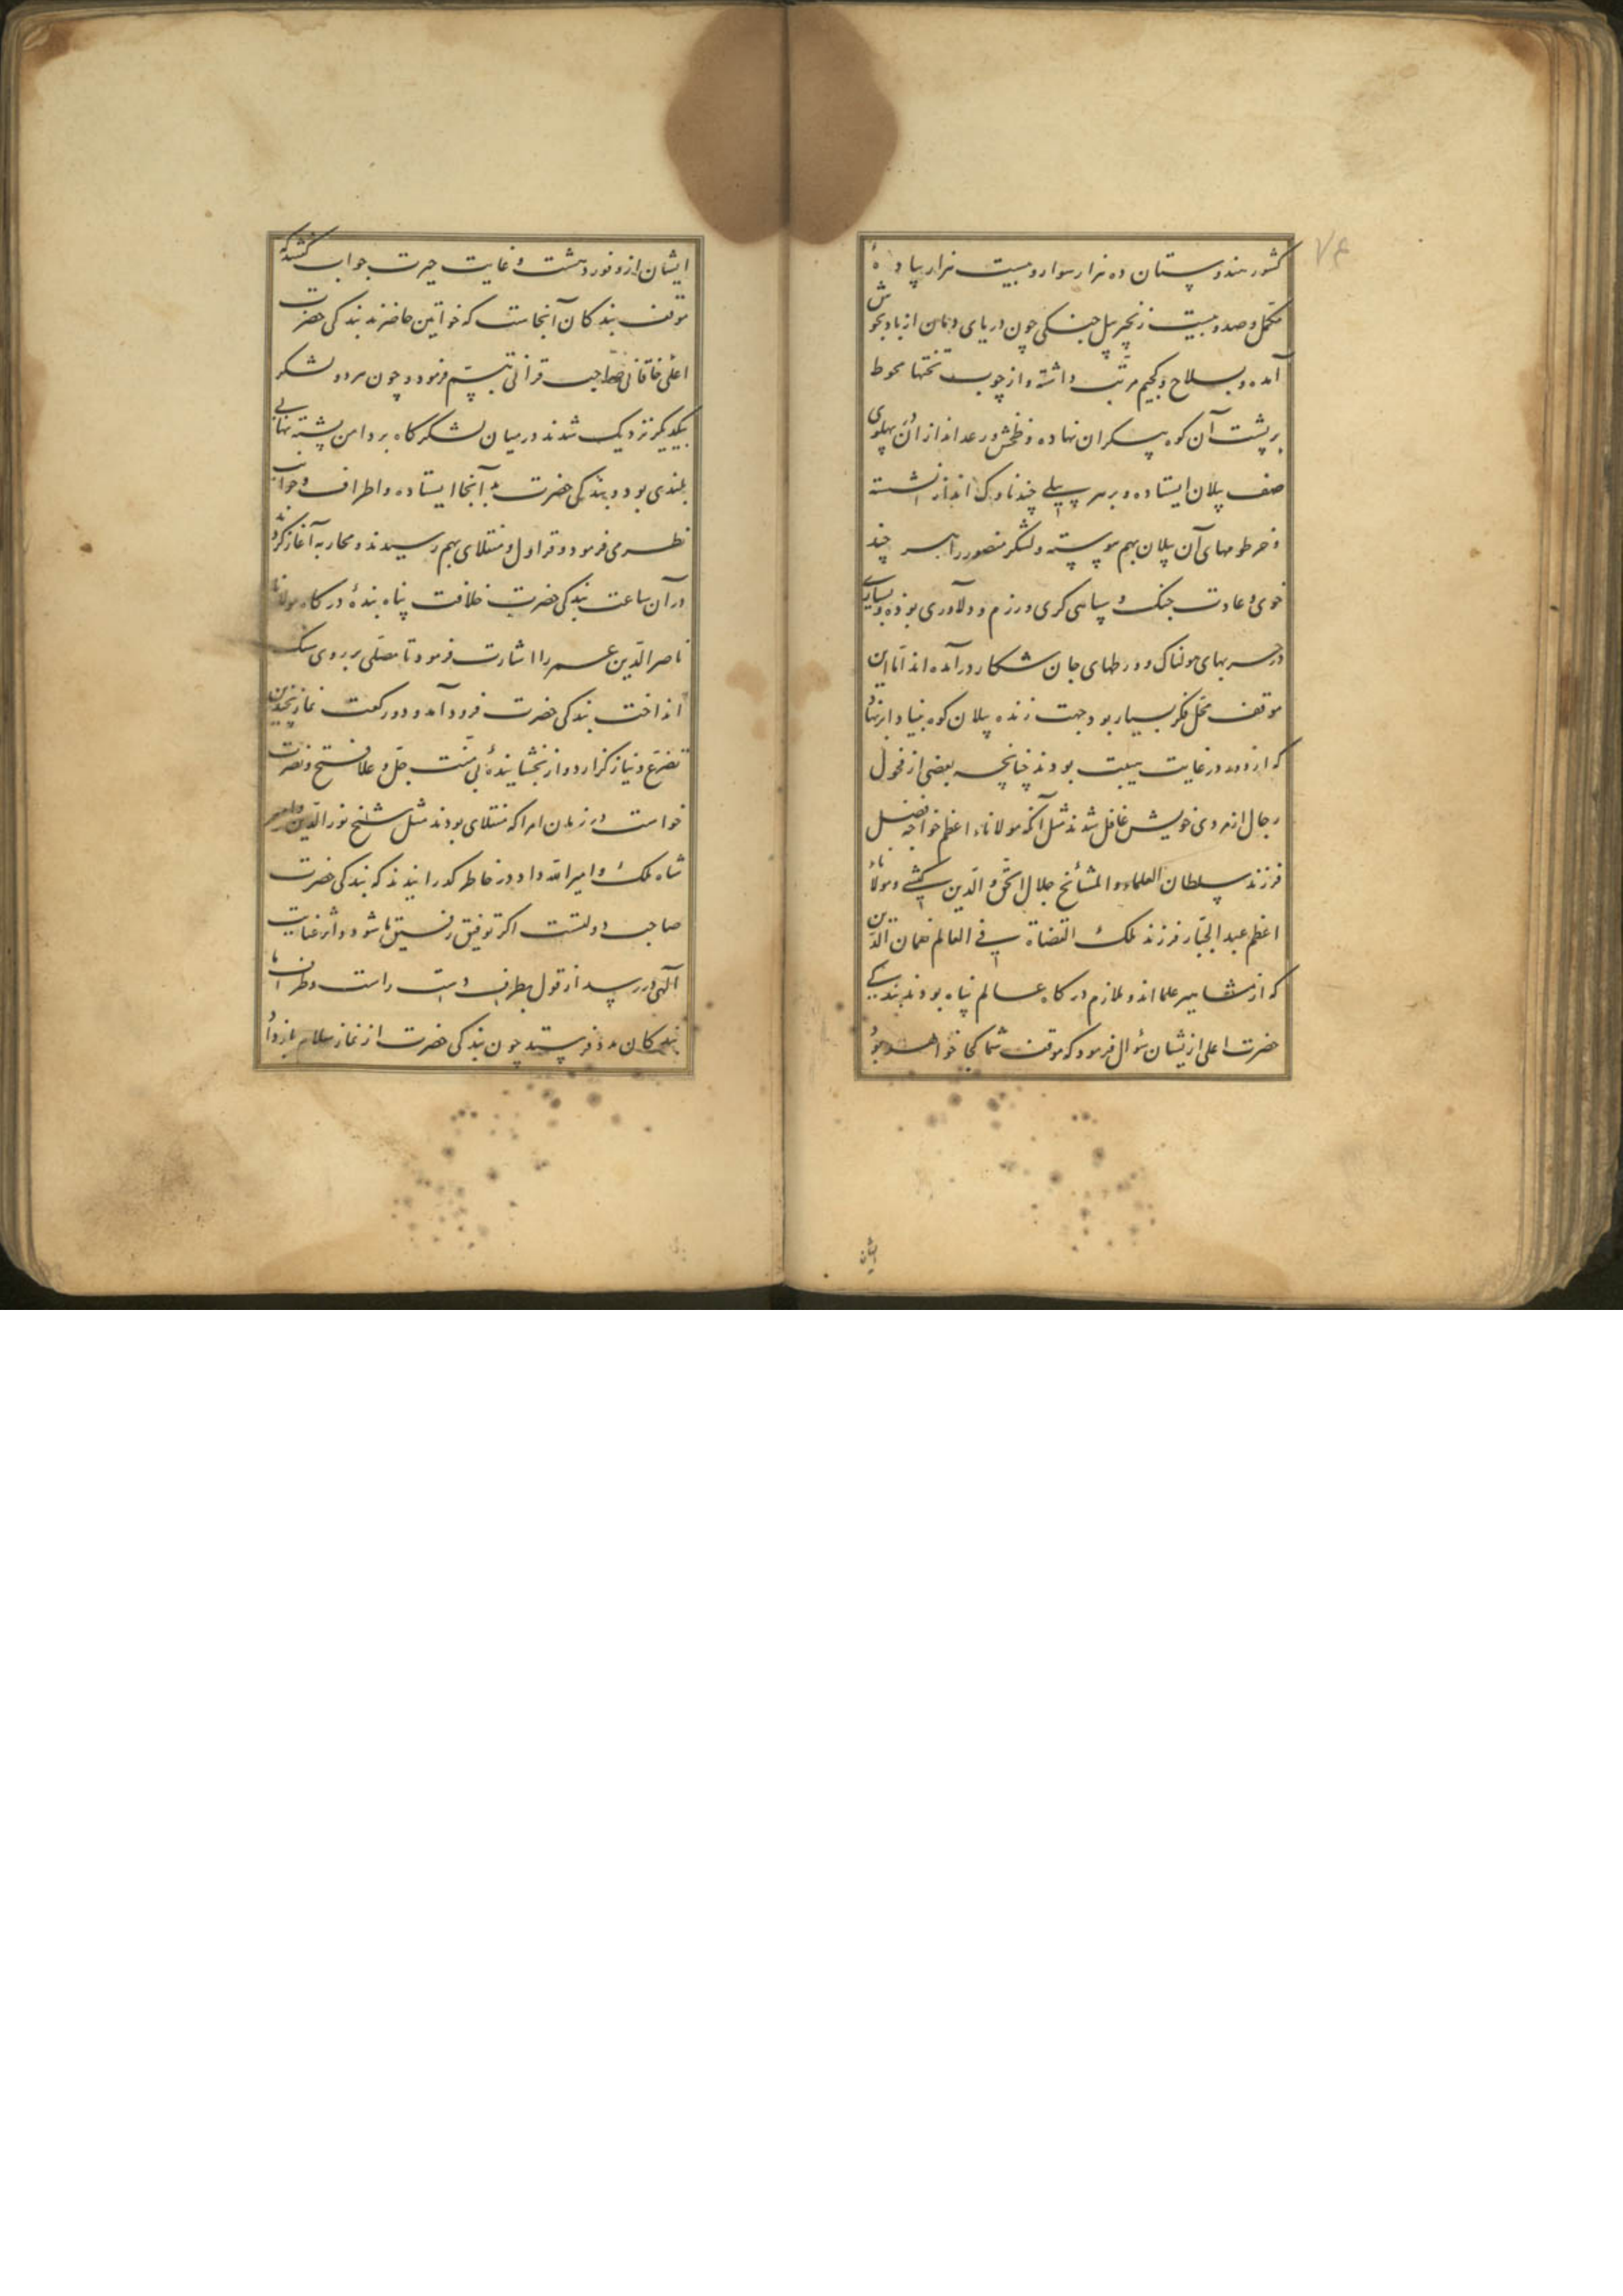 ۷۴
کشور هندوستان ده هزار سوار و بیست هزار پیاده
مکمل و صد و بیست زنجیر پیل جنکی چون دریای دمان از باد بجوش
آمده و بسلاح و کجیم مرتب داشته و از چوب تختها محوط
بر پشت آن کوه پیکران نهاده و تخش و رعد انداز ان در پهلوی
صف پیلان ایستاده و بر هر پیلی چند ناوک انداز نشسته
و خرطومهای آن پیلان بهم پیوسته و لشکر منصور را هر چند
خوی و عادت جنک و سپاهی کری و رزم و دلاوری بوده و بسیاری
در حربهای هولناک و ورطهای جان شکار در آمده اند اما این
موقف محل فکر بسیار بود جهت زنده پیلان کوه بنیاد ابر نهاد
که از دور در غایت هیبت بودند چنانچه بعضی از فحول
رجال از مردی خویش غافل شدند مثل آنکه مولاناء اعظم خواجه فضل
فرزند سلطان العلماء و المشایخ جلال الحق و الدین کشی و مولاناء
اعظم عبد الجبار فرزند ملک القضاة فی العالم نعمان الدین
که از مشاهیر علما اند و ملازم درکاه عالم پناه بودند بندکی
حضرت اعلی از یشان سؤال فرمود که موقف شما کجا خواهد بود
ایشان
ایشان از وفور دهشت و غایت حیرت جواب کفتند که
موقف بندکان آنجاست که خواتین حاضرند بندکی حضرت
اعلی خاقانی صاحب قرانی تبسم فرمود و چون هر دو لشکر
بیکدیکر نزدیک شدند در میان لشکرکاه بر دامن پشته بهالی
بلندی بود و بندکی حضرت به آنجا ایستاده و اطراف و جوانب
نظر می فرمود و قراول و منقلای بهم رسیدند و محاربه آغاز کردند
در آن ساعت بندکی حضرت خلافت پناه بندۀ درکاه مولانا
ناصر الدین عمر را اشارت فرمود تا مصلی بر روی سنک
انداخت بندکی حضرت فرود آمد و دو رکعت نماز بچندین
تضرع و نیاز کزارد و از بخشایندۀ بی منت جل و علا فتح و نصرت
خواست در زمان امرا که منقلای بودند مثل شیخ نور الدین و امیر
شاه ملک و امیر الله داد در خاطر کذرانیدند که بندکی حضرت
صاحب دولتست اکر توفیق رفیق ما شود و اثر عنایت
آلهی در رسد از قول بطرف دست راست و طرف ما
بندکان مدد فرستد چون بندکی حضرت از نماز سلام باز داد